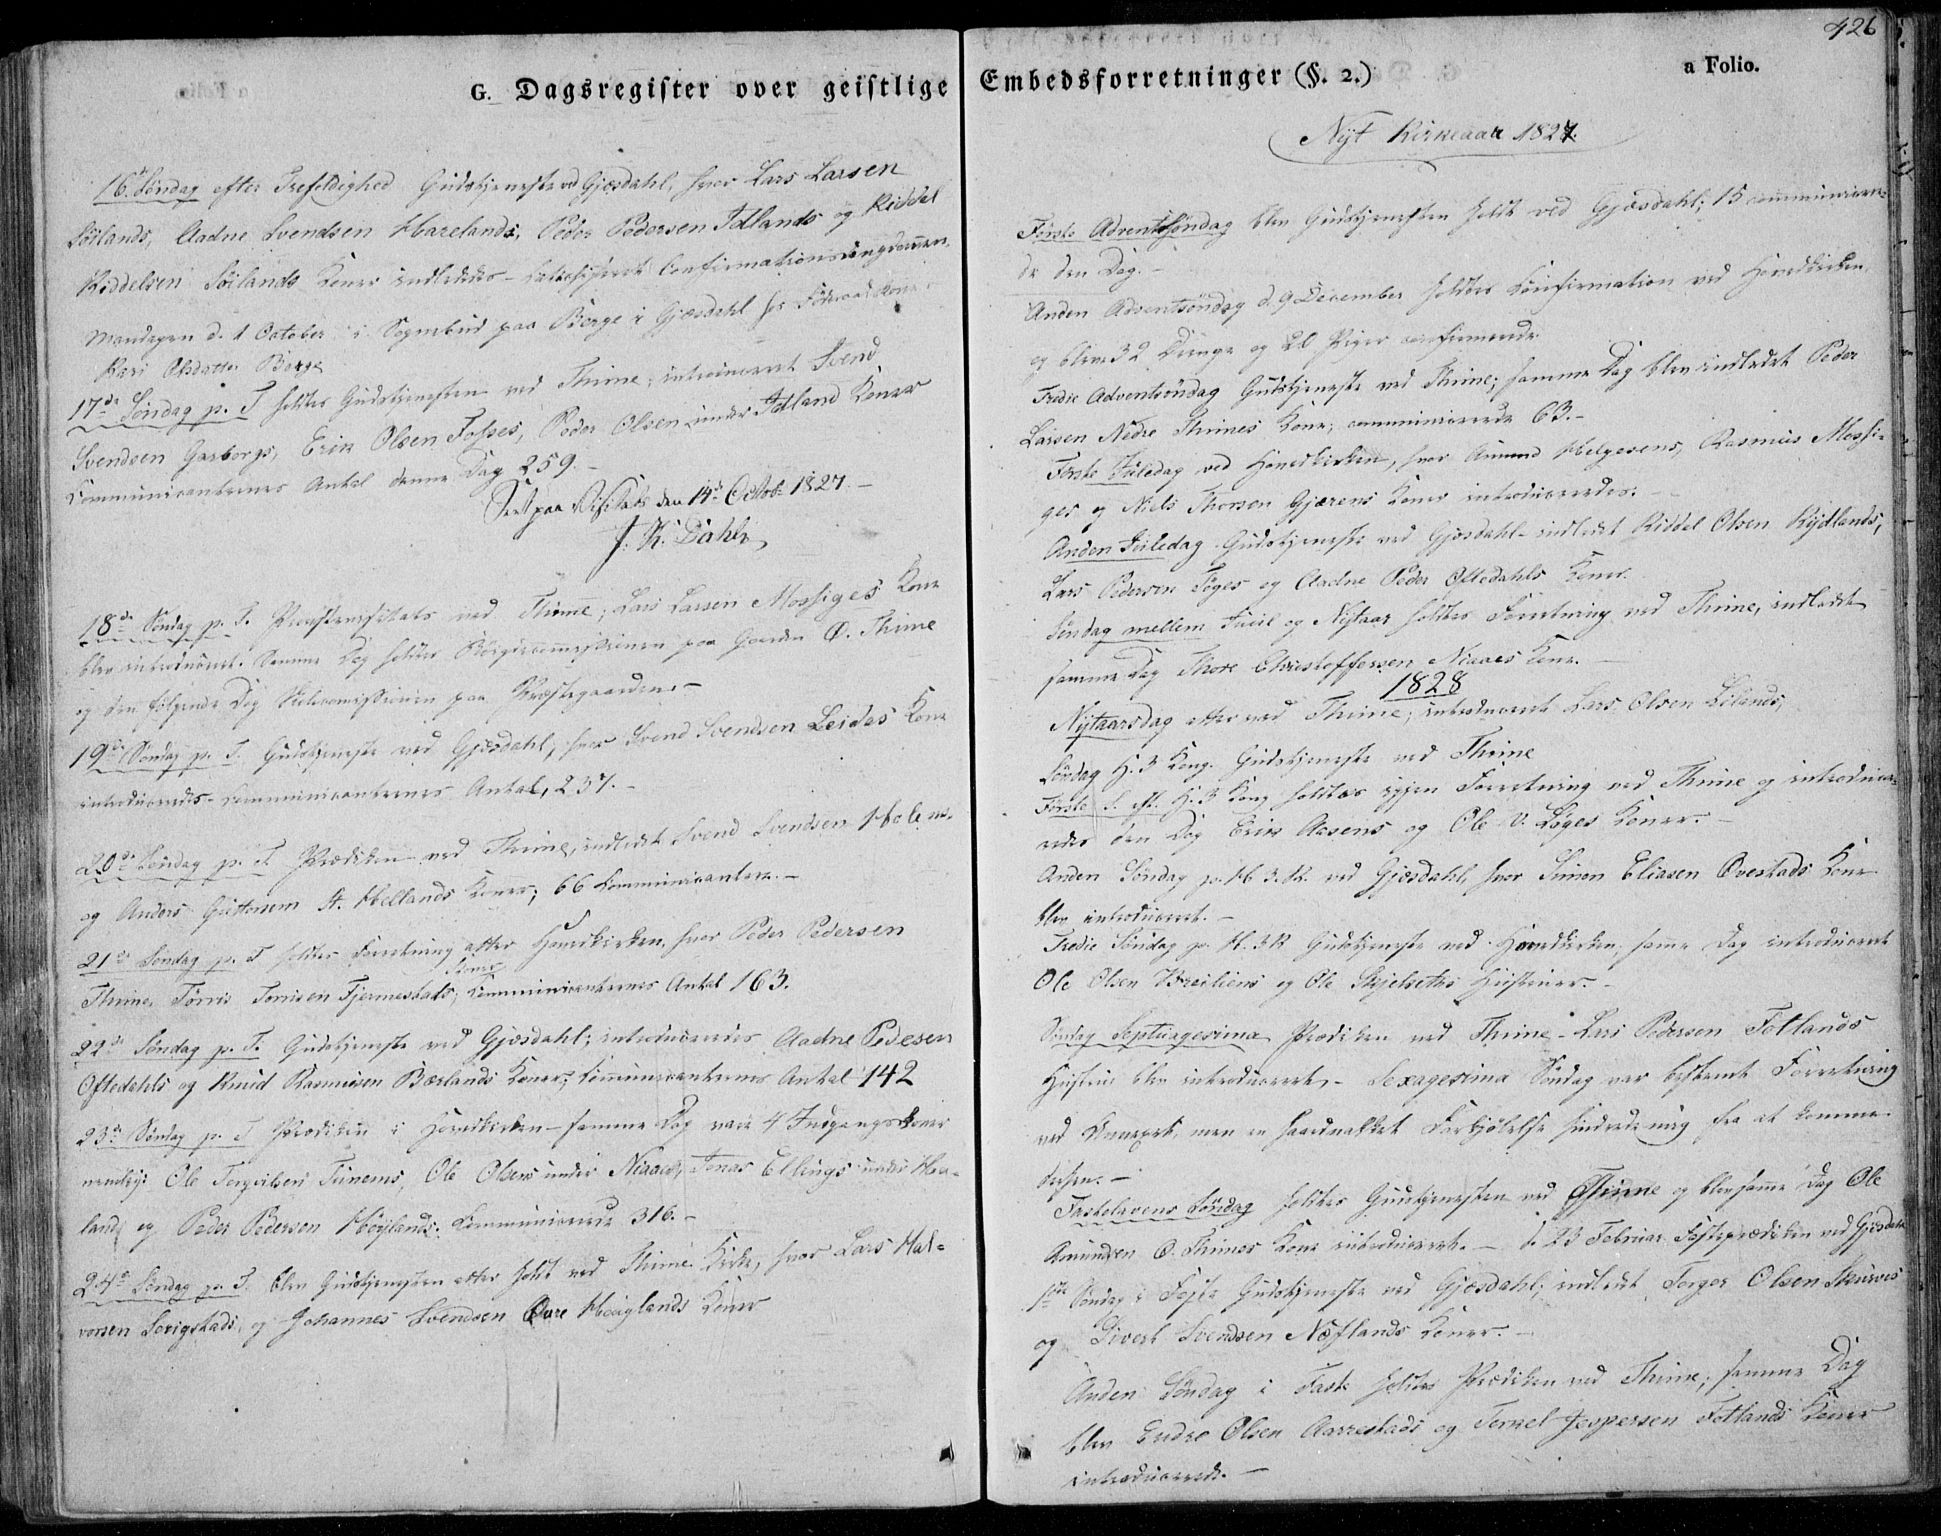 426
G. Dagsregister over geistlige Embedsforretninger (§. 2.) a Folio.
16de Søndag efter Trefoldighed Gudstjeneste ved Gjæsdahl, hvor Lars Larsen
Søilands, Aadne Svendsen Harelands, Peder Pedersen Idlands og Kiddel
Kiddelsen Søilands Koner indlededes – Confirmationsungdommen.
Mandagen d. 1 October i Sognebud paa Berge i Gjæsdahl
Kari Olsdatter Berge
17de Søndag p. T holdtes Gudstjenesten ved Thime; introduceret Svend
Svendsen Garborgs, Erik Olsen Fosses, Peder Olsen under Idland Koner
Kommunikanternes Antal denne Dag 259.–
Seet paa Visitats den 14de Octobr 1827 –
18de Søndag p. T. ved Thime; Lars Larsen Mossiges Kone
blev introduceret. Samme Dag holdtes paa Gaarden Ø. Thime
og den følgende Dag Skolecommissionen paa Præstegaarden.–
19de Søndag p. T. Gudstjeneste ved Gjæsdahl, hvor Svend Svendsen Leidas Kone
introduceredes – Communicanternes Antal, 237.–
20de Søndag p. T Prædiken ved Thime, indledet Svend Svendsen Holens
og Anders Guttormsen St. Hellands Koner; 66 Communicanter.–
21de Søndag p. T holdtes Forretning atter Hovedkirken, hvor Peder Pedersen
Thime, Tørris Tørrisen Tjemestads Koner; Kommunicanternes Antal 163.
22de Søndag p. T. Gudstjeneste ved Gjæsdahl; introduceredes Aadne Pedesen
Oftedahls og Knud Rasmusen Bærlands Koner; Communicanternes Antal 142
23de Søndag p. T Prædiken i Hovedkirken – samme Dag vare 4 Indgangskoner
nemlig: Ole Torgersen Tunems, Ole Olsens under Niaaes, Jonas Ellings under Haa-
land og Peder Pedersen Høylands. Communicerede 316.–
24de Søndag p. T. blev Gudstjenesten atter holdt ved Thime Kirke, hvor Lars Hal-
vorsen Serigstads og Johannes Svendsen Øvre Høiglands Koner
Nyt Kirkeaar 1827.
Første Adventssøndag blev Gudstjenesten holdt ved Gjæsdahl; 15 communicere-
de den Dag.–
Anden Adventsøndag d. 9 December holdtes Confirmation ved Hovedkirken,
og bleve 32 Drenge og 20 Piger confirmerede
Tredie Adventsøndag Gudstjeneste ved Thime; samme Dag blev indledet Peder
Larsen Nedre Thimes Kone; communicerede 63.–
Første Juledag ved Hovedkirken, hvor Amund Helgesens, Rasmus Mossi-
ges og Niels Thorsen Gjærens Koner introduceredes.–
Anden Juledag Gudstjeneste ved Gjæsdahl – indledet Kiddel Olsen Rydlands,
Lars Pedersen Søges og Aadne Peder Oftedahls Koner.
Søndag mellem Juul og Nytaar holdtes Forretning ved Thime, indledet
samme Dag Thore Christoffersen Niaaes Kone.–
1828
Nytaarsdag atter ved Thime; introduceret Lars Olsen Lilands,
Søndag H. 3 Kong. Gudstjeneste ved Thime
Første S. eft. H. 3 Kong holdtes igjen Forretning ved Thime og introduce-
redes den Dag Erik Aasens og Ole V. Løges Koner.–
Anden Søndag p. H. 3. K. ved Gjæsdahl, hvor Simon Eliasen Ovestads Kone
blev introduceret.–
Tredie Søndag p. H. 3 K Gudstjeneste ved Hovedkirken, samme Dag introduceret
Ole Olsen Brueliens og Ole Skjelseths Hustruer.–
Søndag Septuagesima Prædiken ved Thime – Lars Pedersen Fotlands
Hustrue blev introduceret – Sexagesima Søndag var bestemt Forretning
ved Annexet, men en haardnakket Forkjølelse hindrede mig fra at komme
dersen.–
Fastelavens Søndag holdtes Gudstjenesten ved Thime og blev samme Dag Ole
Amundsen Ø. Thimes Kone introduceret.– d. 23 Februar Fasteprædiken ved Gjæsdahl
1ste Søndag i Faste Gudstjeneste ved Gjæsdahl; indledet Torger Olsen Skurves
og Sivert Svendsen Næslands Koner.–
Anden Søndag i Faste holdtes Prædiken ved Thime; samme Dag
blev Endre Olsen Aarrestads og Tormel Jespersen Fotlands Koner
introducerede.–